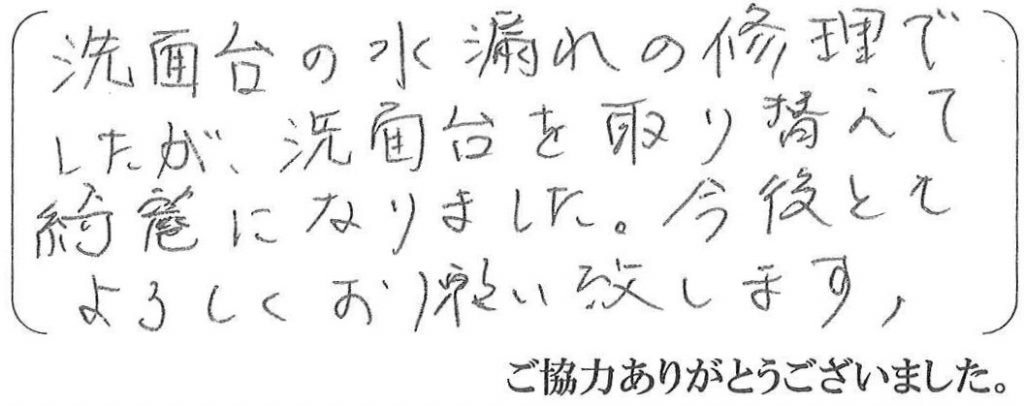 洗面台の水漏れの修理で
したが、洗面台を取り替えて
綺麗になりました。今後とも
よろしくお願い致します,
ご協力ありがとうございました。